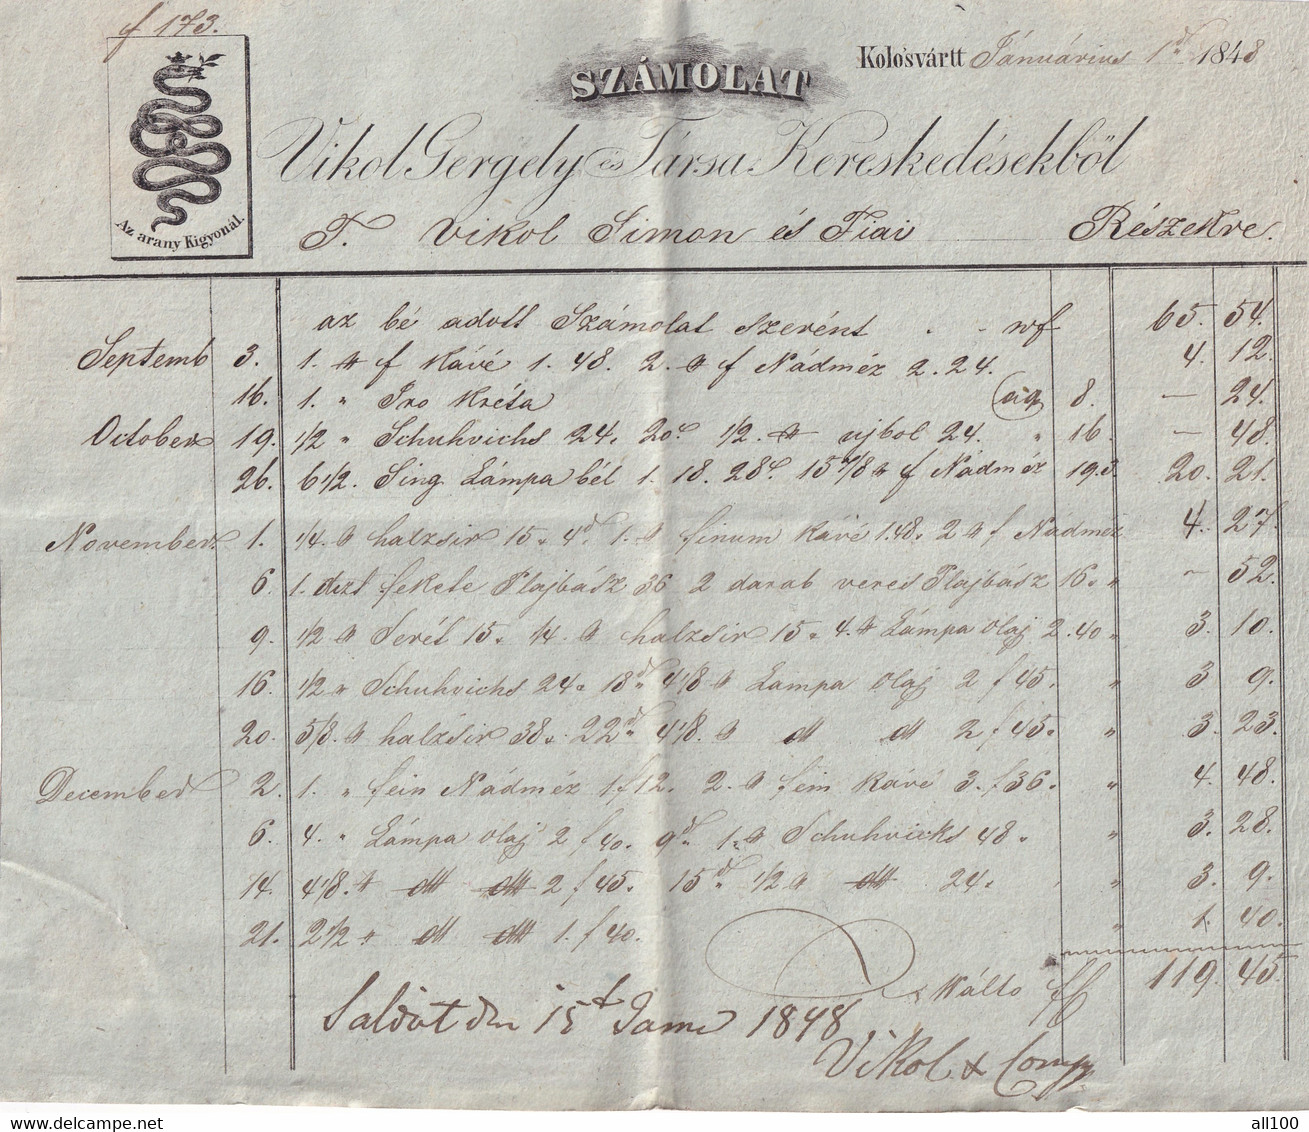 f 173.
Kolo'svártt Januárius 1ᵈ 1848
SZÁMOLAT
Vikol Gergely és Társa Kereskedésekből
Az arany Kigyonál.
T. Vikol Simon és Fiai Részekre.
az bé adott Számolat szerént . - wf 65. 54.
Septemb 3. 1. ℔ f Kávé 1. 48. 2. ℔ f Nádméz 2. 24. 4. 12.
16. 1. " Iro Kréta 8. — 24.
October 19. 1/2 " Schuhvichs 24. 20ᵈ 1/2. ℔ ujbol 24. " 16. — 48.
26. 6 1/2. Sing Lámpa bél 1. 18. 28ᵈ 15 7/8 ℔ f Nádméz 19.3 20. 21.
November 1. 1/4. ℔ halzsir 15. 4ᵈ 1. ℔ finum Kávé 1.48. 2 ℔ f Nádméz 4. 27.
6. 1. dczt fekete Plajbász 36 2 darab veres Plajbász 16. " — 52.
9. 1/2 ℔ 15. 1/4. ℔ halzsir 15. 4. ℔ Lámpa olaj 2.40 " 3. 10.
16. 1/2 " Schuhvichs 24. 18ᵈ 4 1/8 ℔ Lámpa olaj 2 f 45. " 3 9.
20. 5/8. ℔ halzsir 38. 22ᵈ 4 1/8. ℔ dtt dtt 2 f 45. " 3. 23.
December 2. 1. " fein Nádméz 1 f 12. 2. ℔ fein Kávé 3. f 36. " 4. 48.
6. 4. " Lámpa olaj 2 f 40. 9ᵈ 1. ℔ Schuhvicks 48. " 3. 28.
14. 4 1/8. ℔ dtt dtt 2 f 45. 15ᵈ 1/2 ℔ dtt 24. " 3. 9.
21. 2 1/2 ℔ dtt dtt 1. f 40. " 1. 40.
Wálto 119. 45.
Saldirt den 15t 1848
Vikol & Comp
all100